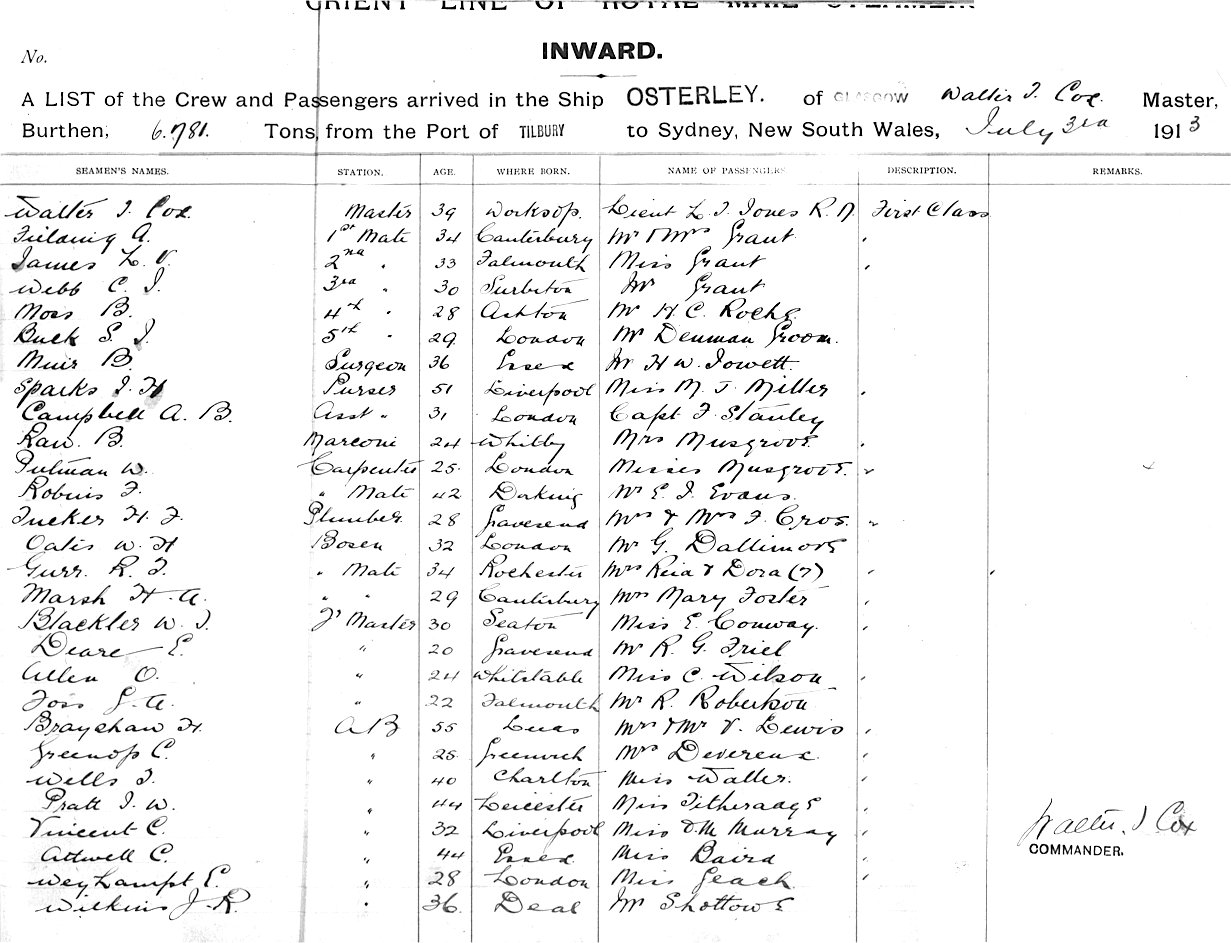 ORIENT LINE OF ROYAL MAIL STEAMERS
No.
INWARD.
A LIST of the Crew and Passengers arrived in the Ship OSTERLEY. of GLASGOW Walter J. Cox. Master,
Burthen, 6.781. Tons, from the Port of TILBURY to Sydney, New South Wales, July 3rd 1913
SEAMEN'S NAMES. STATION. AGE. WHERE BORN. NAME OF PASSENGERS. DESCRIPTION. REMARKS.
Walter J. Cox. Master 39 Worksop. Lieut L. J. Jones R. N First Class
Fielding A. 1st Mate 34 Canterbury Mr & Mrs Grant "
James L. V. 2nd " 33 Falmouth Miss Grant "
Webb C. J. 3rd " 30 Surbiton Mr Grant
Moss B. 4th " 28 Ashton Mr H. C. Roche
Buck S. J. 5th " 29 London Mr Denman Groom.
Muir B. Surgeon 36 Essex Mr H. W. Jowett.
Sparks J. H Purser 51 Liverpool Miss M. J. Miller "
Campbell A. B. Asst " 31 London Capt F. Stanley
Raw. B. Marconi 24 Whitby Mrs Musgrove "
Pulman W. Carpenter 25 London Misses Musgrove. "
Robins F. " Mate 42 Dorking Mr E. J. Evans.
Tucker H. F. Plumber 28 Gravesend Mrs & Mrs F. Cros. "
Oates W. H Bosen 32 London Mr G. Dallimore "
Gurr. R. J. " Mate 34 Rochester Mrs Reid & Dora (7) "
Marsh H. A. " " 29 Canterbury Mrs Mary Foster "
Blackler W. J. Master 30 Seaton Miss E. Conway. "
Deare E. " 20 Gravesend Mr R. G. Friel "
Allen O. " 24 Whitstable Miss C. Wilson "
Foss G. A. " 22 Falmouth Mr R. Robertson "
Brayshaw H. A B 55 Leeds Mrs & Mr V. Lewis "
Greenop C. " 25 Greenwich Mrs Devereux. "
Wells J. " 40 Charlton Miss Walter. "
Pratt J. W. " 44 Leicester Miss Titheradge "
Vincent C. " 32 Liverpool Miss D. M. Murray "
Attwell C. " 44 Essex Miss Baird "
E. " 28 London Miss Geach "
Wilkins J. R. " 36. Deal Mr Shottowe
Walter. J Cox
COMMANDER.